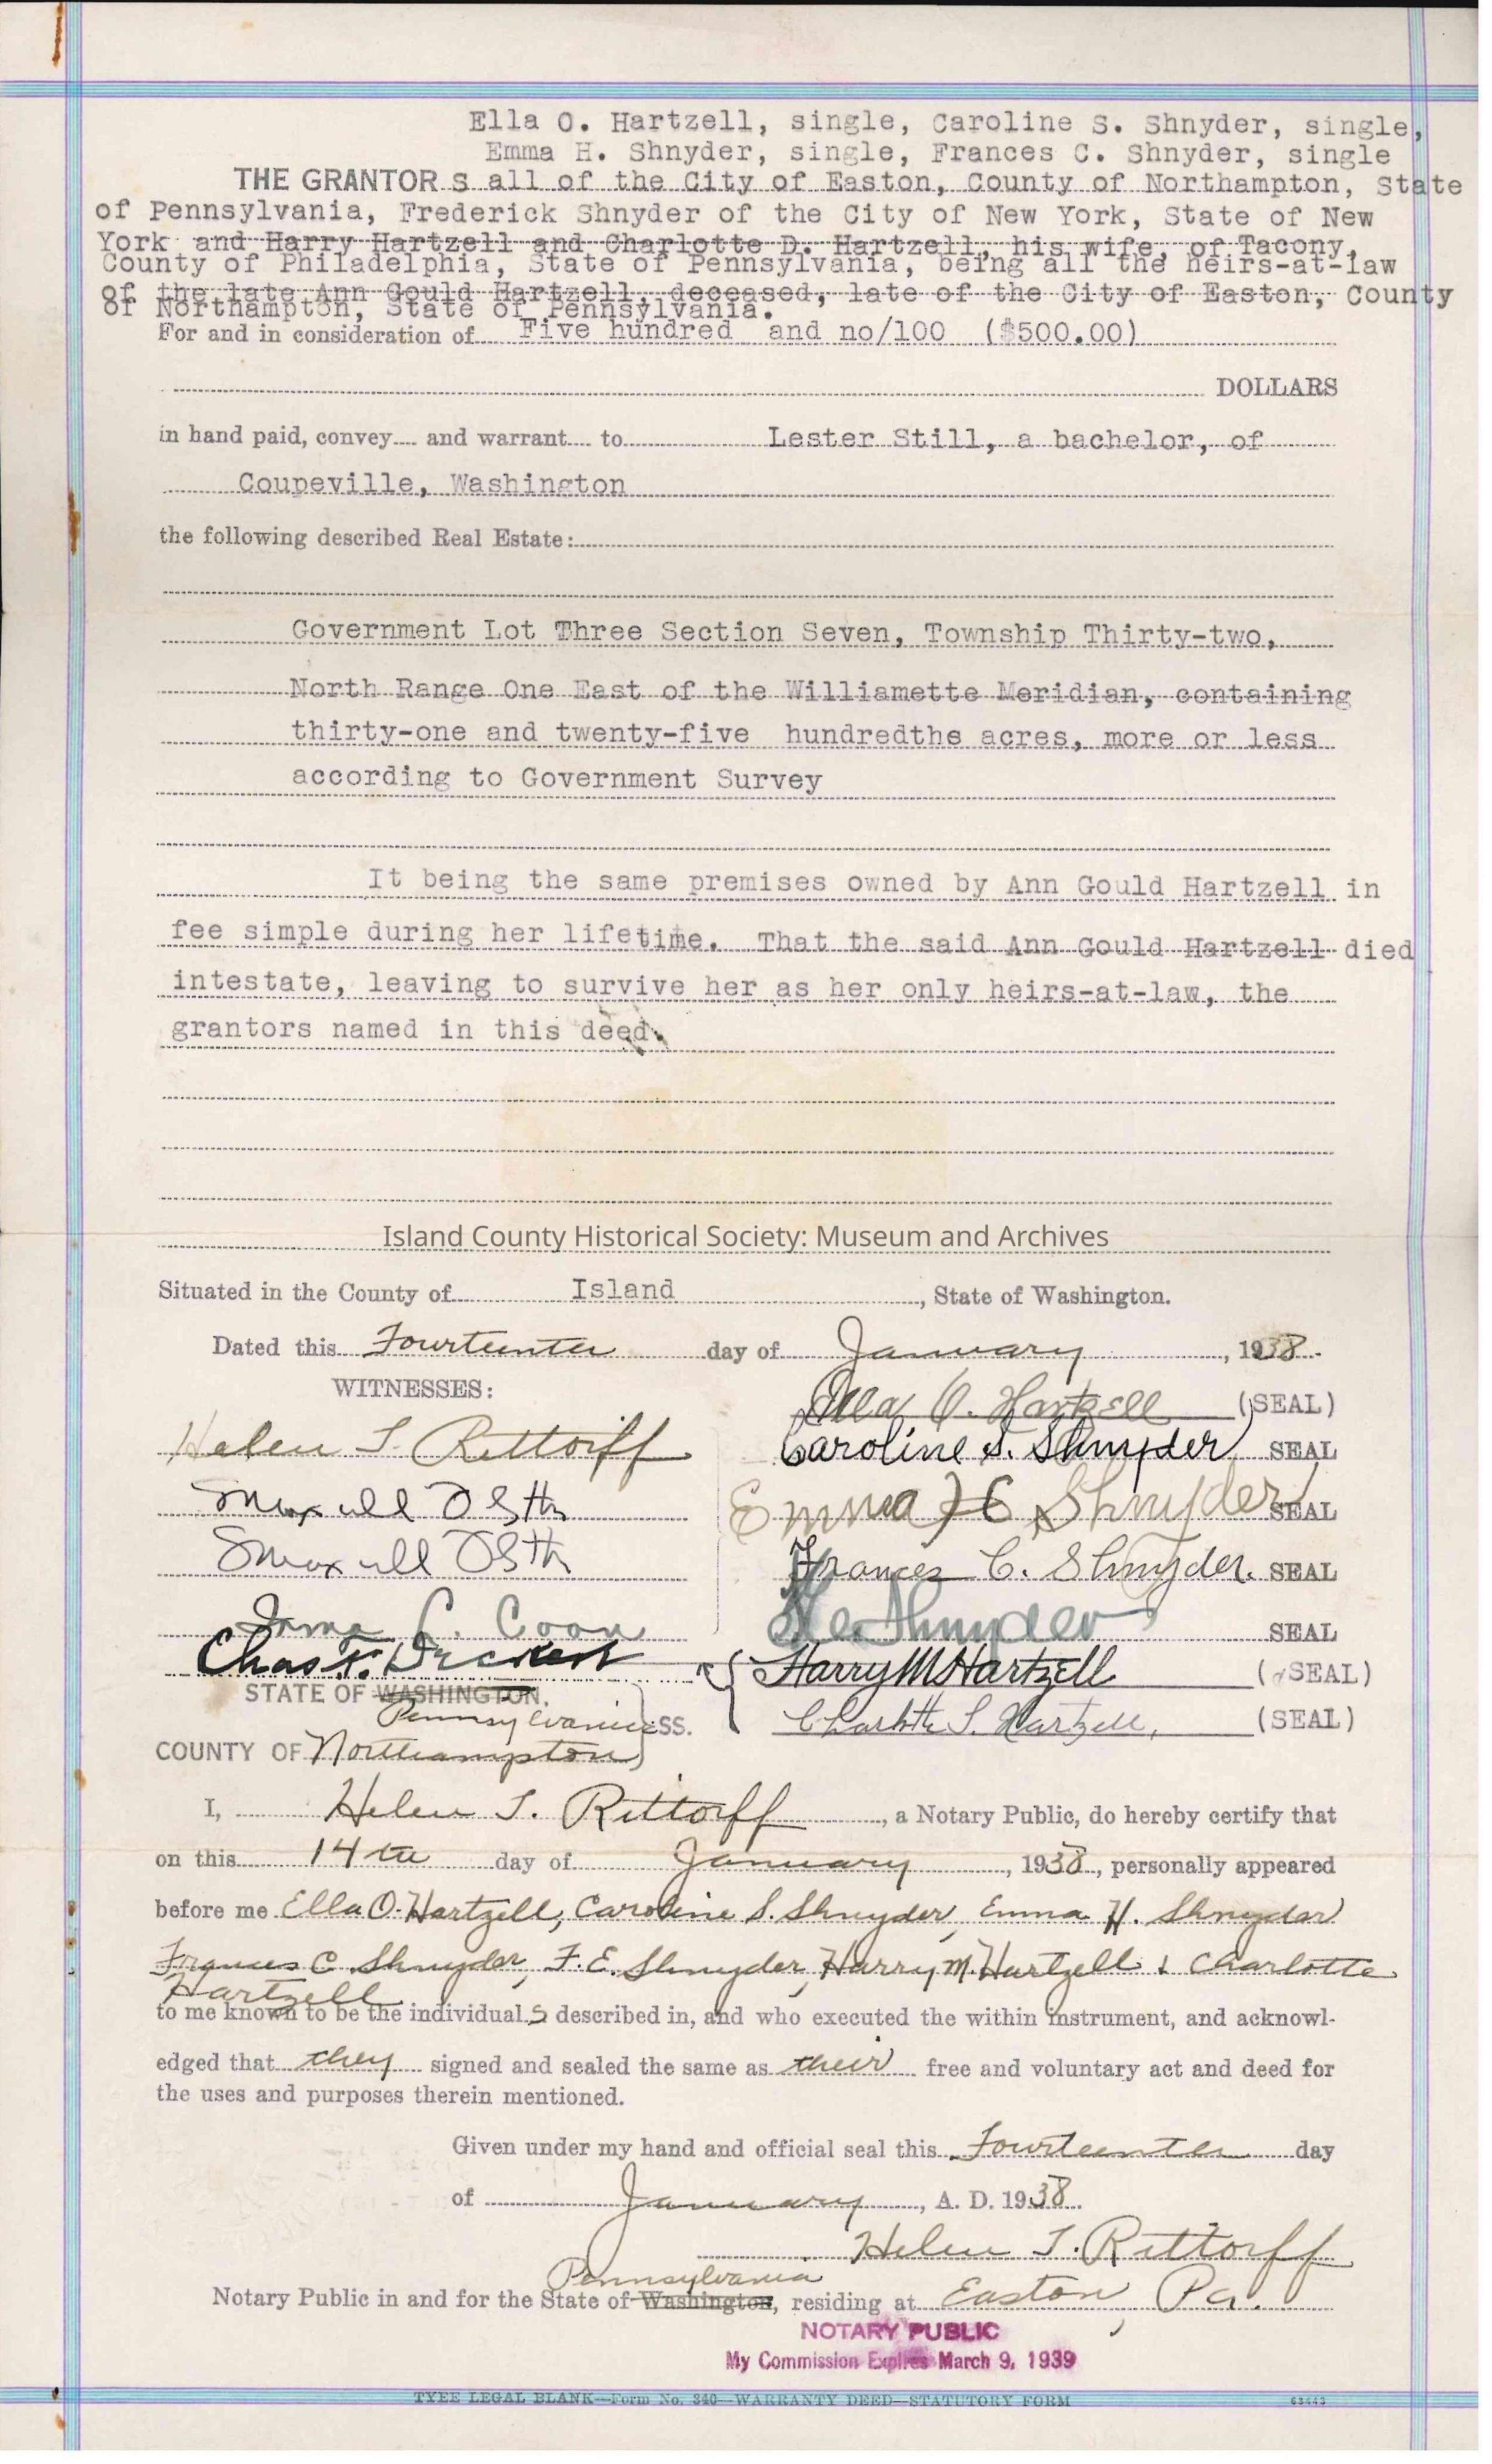 Ella O. Hartzell, single, Caroline S. Shnyder, single,
Emma H. Shnyder, single, Frances C. Shnyder, single
THE GRANTOR S all of the City of Easton, County of Northampton, State
of Pennsylvania, Frederick Shnyder of the City of New York, State of New
York and Harry Hartzell and Charlotte D. Hartzell, his wife, of Tacony,
County of Philadelphia, State of Pennsylvania, being all the heirs-at-law
of the late Ann Gould Hartzell, deceased, late of the City of Easton, County
of Northampton, State of Pennsylvania.
For and in consideration of Five hundred and no/100 ($500.00)
DOLLARS
in hand paid, convey and warrant to Lester Still, a bachelor, of
Coupeville, Washington
the following described Real Estate:
Government Lot Three Section Seven, Township Thirty-two,
North Range One East of the Williamette Meridian, containing
thirty-one and twenty-five hundredths acres, more or less
according to Government Survey
It being the same premises owned by Ann Gould Hartzell in
fee simple during her lifetime. That the said Ann Gould Hartzell died
intestate, leaving to survive her as her only heirs-at-law, the
grantors named in this deed.
Island County Historical Society: Museum and Archives
Situated in the County of Island, State of Washington.
Dated this Fourteenth day of January, 1938.
WITNESSES:
Ella O. Hartzell (SEAL)
Helen T. Rittorff Caroline S. Shnyder SEAL
Emma H Shnyder SEAL
Frances C. Shnyder. SEAL
C. Coon Shnyder SEAL
Chas. Harry M Hartzell (SEAL)
STATE OF WASHINGTON,
Pennsylvania SS. Hartzell, (SEAL)
COUNTY OF Northampton
I, Helen T. Rittorff, a Notary Public, do hereby certify that
on this 14th day of January, 1938, personally appeared
before me Ella O. Hartzell, Caroline S. Shnyder, Emma H. Shnyder
Frances C. Shnyder, F. E. Shnyder, Harry M. Hartzell & Charlotte
Hartzell
to me known to be the individual s described in, and who executed the within instrument, and acknowl-
edged that they signed and sealed the same as their free and voluntary act and deed for
the uses and purposes therein mentioned.
Given under my hand and official seal this Fourteenth day
of January, A. D. 1938.
Helen T. Rittorff
Pennsylvania
Notary Public in and for the State of Washington, residing at Easton, Pa.
NOTARY PUBLIC
My Commission Expires March 9, 1939
TYEE LEGAL BLANK—Form No. 340—WARRANTY DEED—STATUTORY FORM